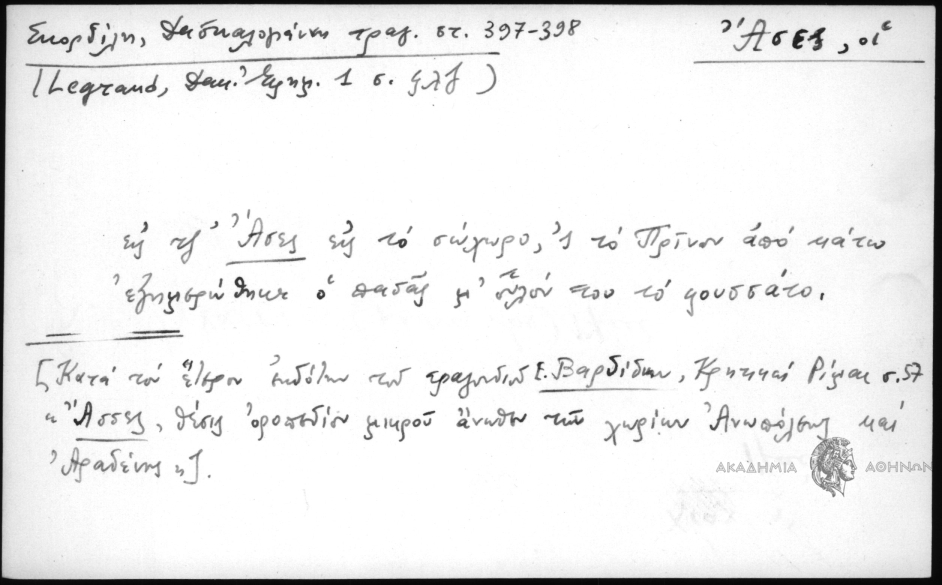 Σκορδίλη, Δασκαλογιάννη τραγ. στ. 397-398
Ἄσες, οἱ
(Legrand, 1 σ. )
εἰς τσ' Ἄσες εἰς τὸ σώχωρο, 'ς τὸ Πρῖνον ἀπὸ κάτω
ἐξημερώθηκε ὁ πασᾶς μ' οὗλόν του τὸ φουσσᾶτο.
[Κατὰ τὸν ἕτερον ἐκδότην τοῦ τραγουδιοῦ Ε. Βαρδίδην, Κρητικαὶ Ρίμαι σ. 57
« Ἄσσες, θέσις ὀροπεδίου μικροῦ ἄνωθεν τῶν χωρίων Ἀνωπόλεως καὶ
Ἀραδένης »].
ΑΚΑΔΗΜΙΑ ΑΘΗΝΩΝ